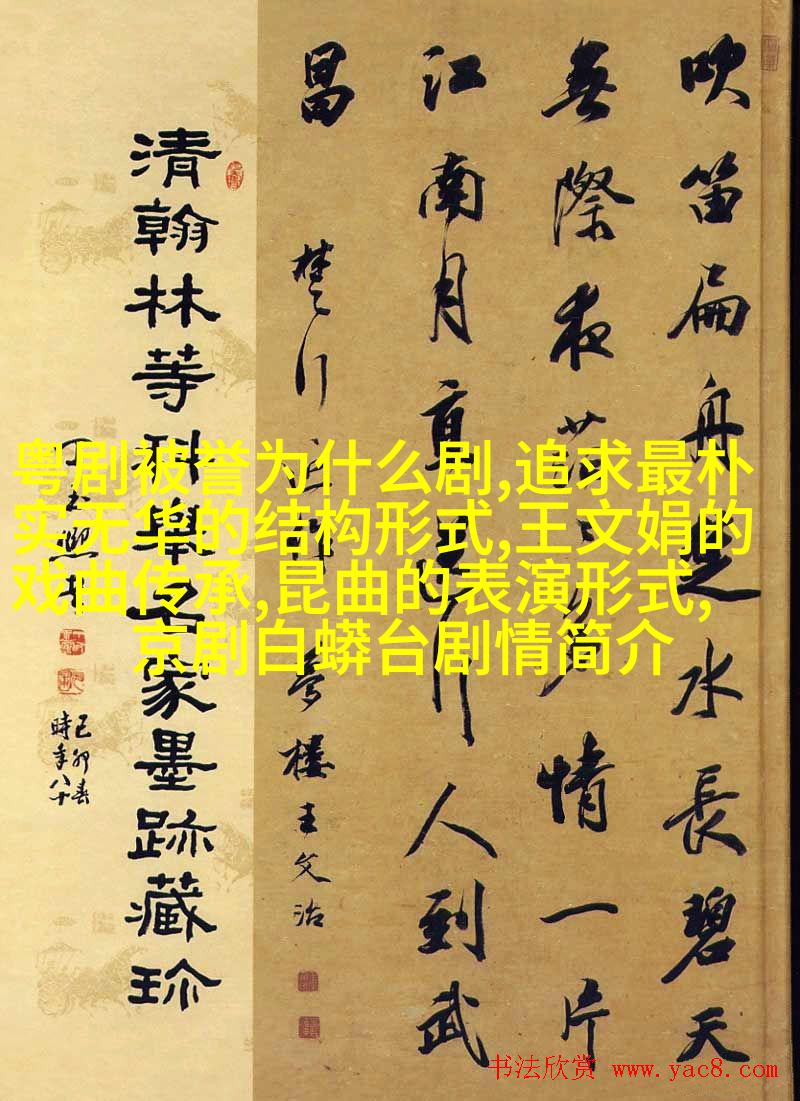 吹笛扁舟水長碧天
無際夜情一片
江南月人到武
昌
樓王文治
清翰林等科舉家墨跡藏珍
己卯春
時年八十
粤剧被誉为什么剧,追求最朴
实无华的结构形式,王文娟的
戏曲传承,昆曲的表演形式,
京剧白蟒台剧情简介
书法欣赏 www.yac8.com